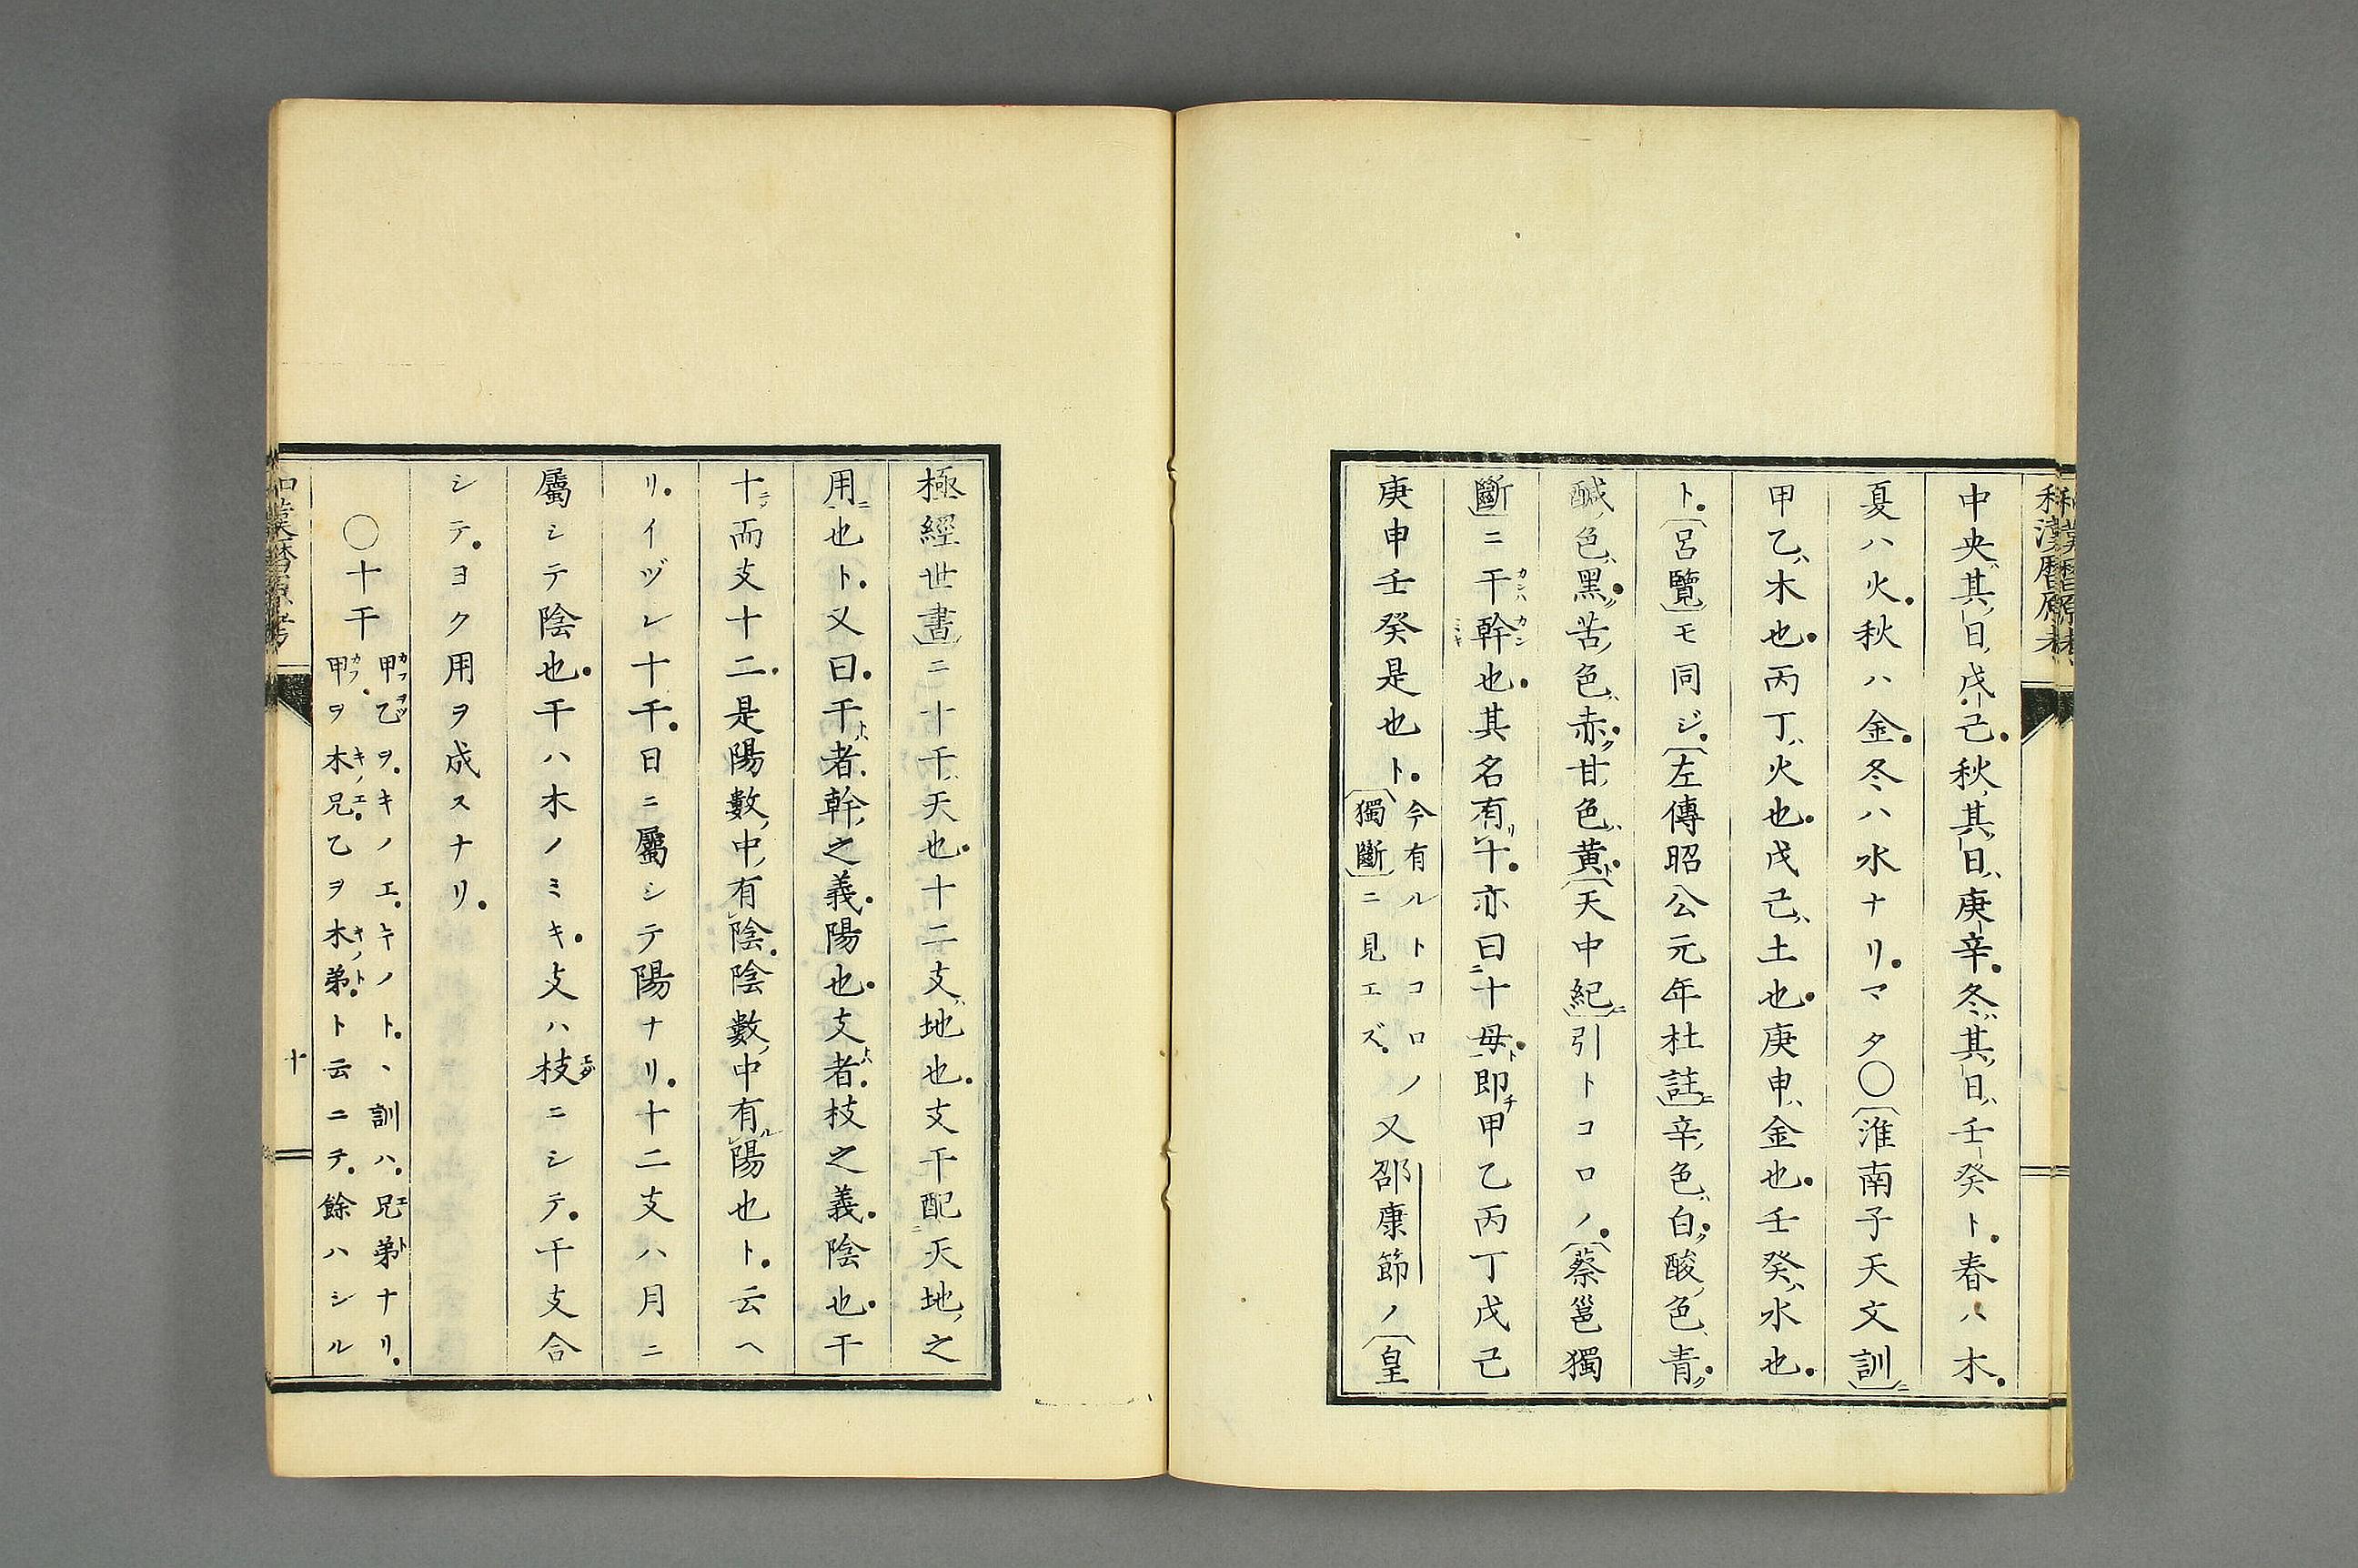 中央其日戊己秋其日庚辛冬其日壬癸ト春ハ木
夏ハ火秋ハ金冬ハ水ナリマタ○〔淮南子天文訓〕ニ
甲乙ハ木也丙丁ハ火也戊己ハ土也庚申ハ金也壬癸ハ水也
ト〔呂覽〕モ同ジ〔左傳昭公元年杜註〕ニ辛色ハ白ク酸色青ク
醎色ハ黑ク苦色ハ赤ク甘色ハ黄ト〔天中紀〕ニ引トコロノ〔蔡邕獨
斷〕ニ干幹也其名有十亦曰十母即甲乙丙丁戊己
庚申壬癸是也ト今有ルトコロノ〔獨斷〕ニ見エズ又邵康節ノ〔皇
極經世書〕ニ十干天也十二支ハ地也支干配天地之
用也ト又曰干者幹之義陽也支者枝之義陰也干
十而支十二是陽數中有陰陰數中有陽也ト云ヘ
リイヅレ十干日ニ屬シテ陽ナリ十二支ハ月ニ
屬シテ陰也干ハ木ノミキ支ハ枝ニシテ干支合
シテヨク用ヲ成スナリ
○十干
甲乙ヲキノエキノト、訓ハ兄弟ナリ
甲ヲ木兄乙ヲ木弟ト云ニテ餘ハシル
和漢暦原考
十